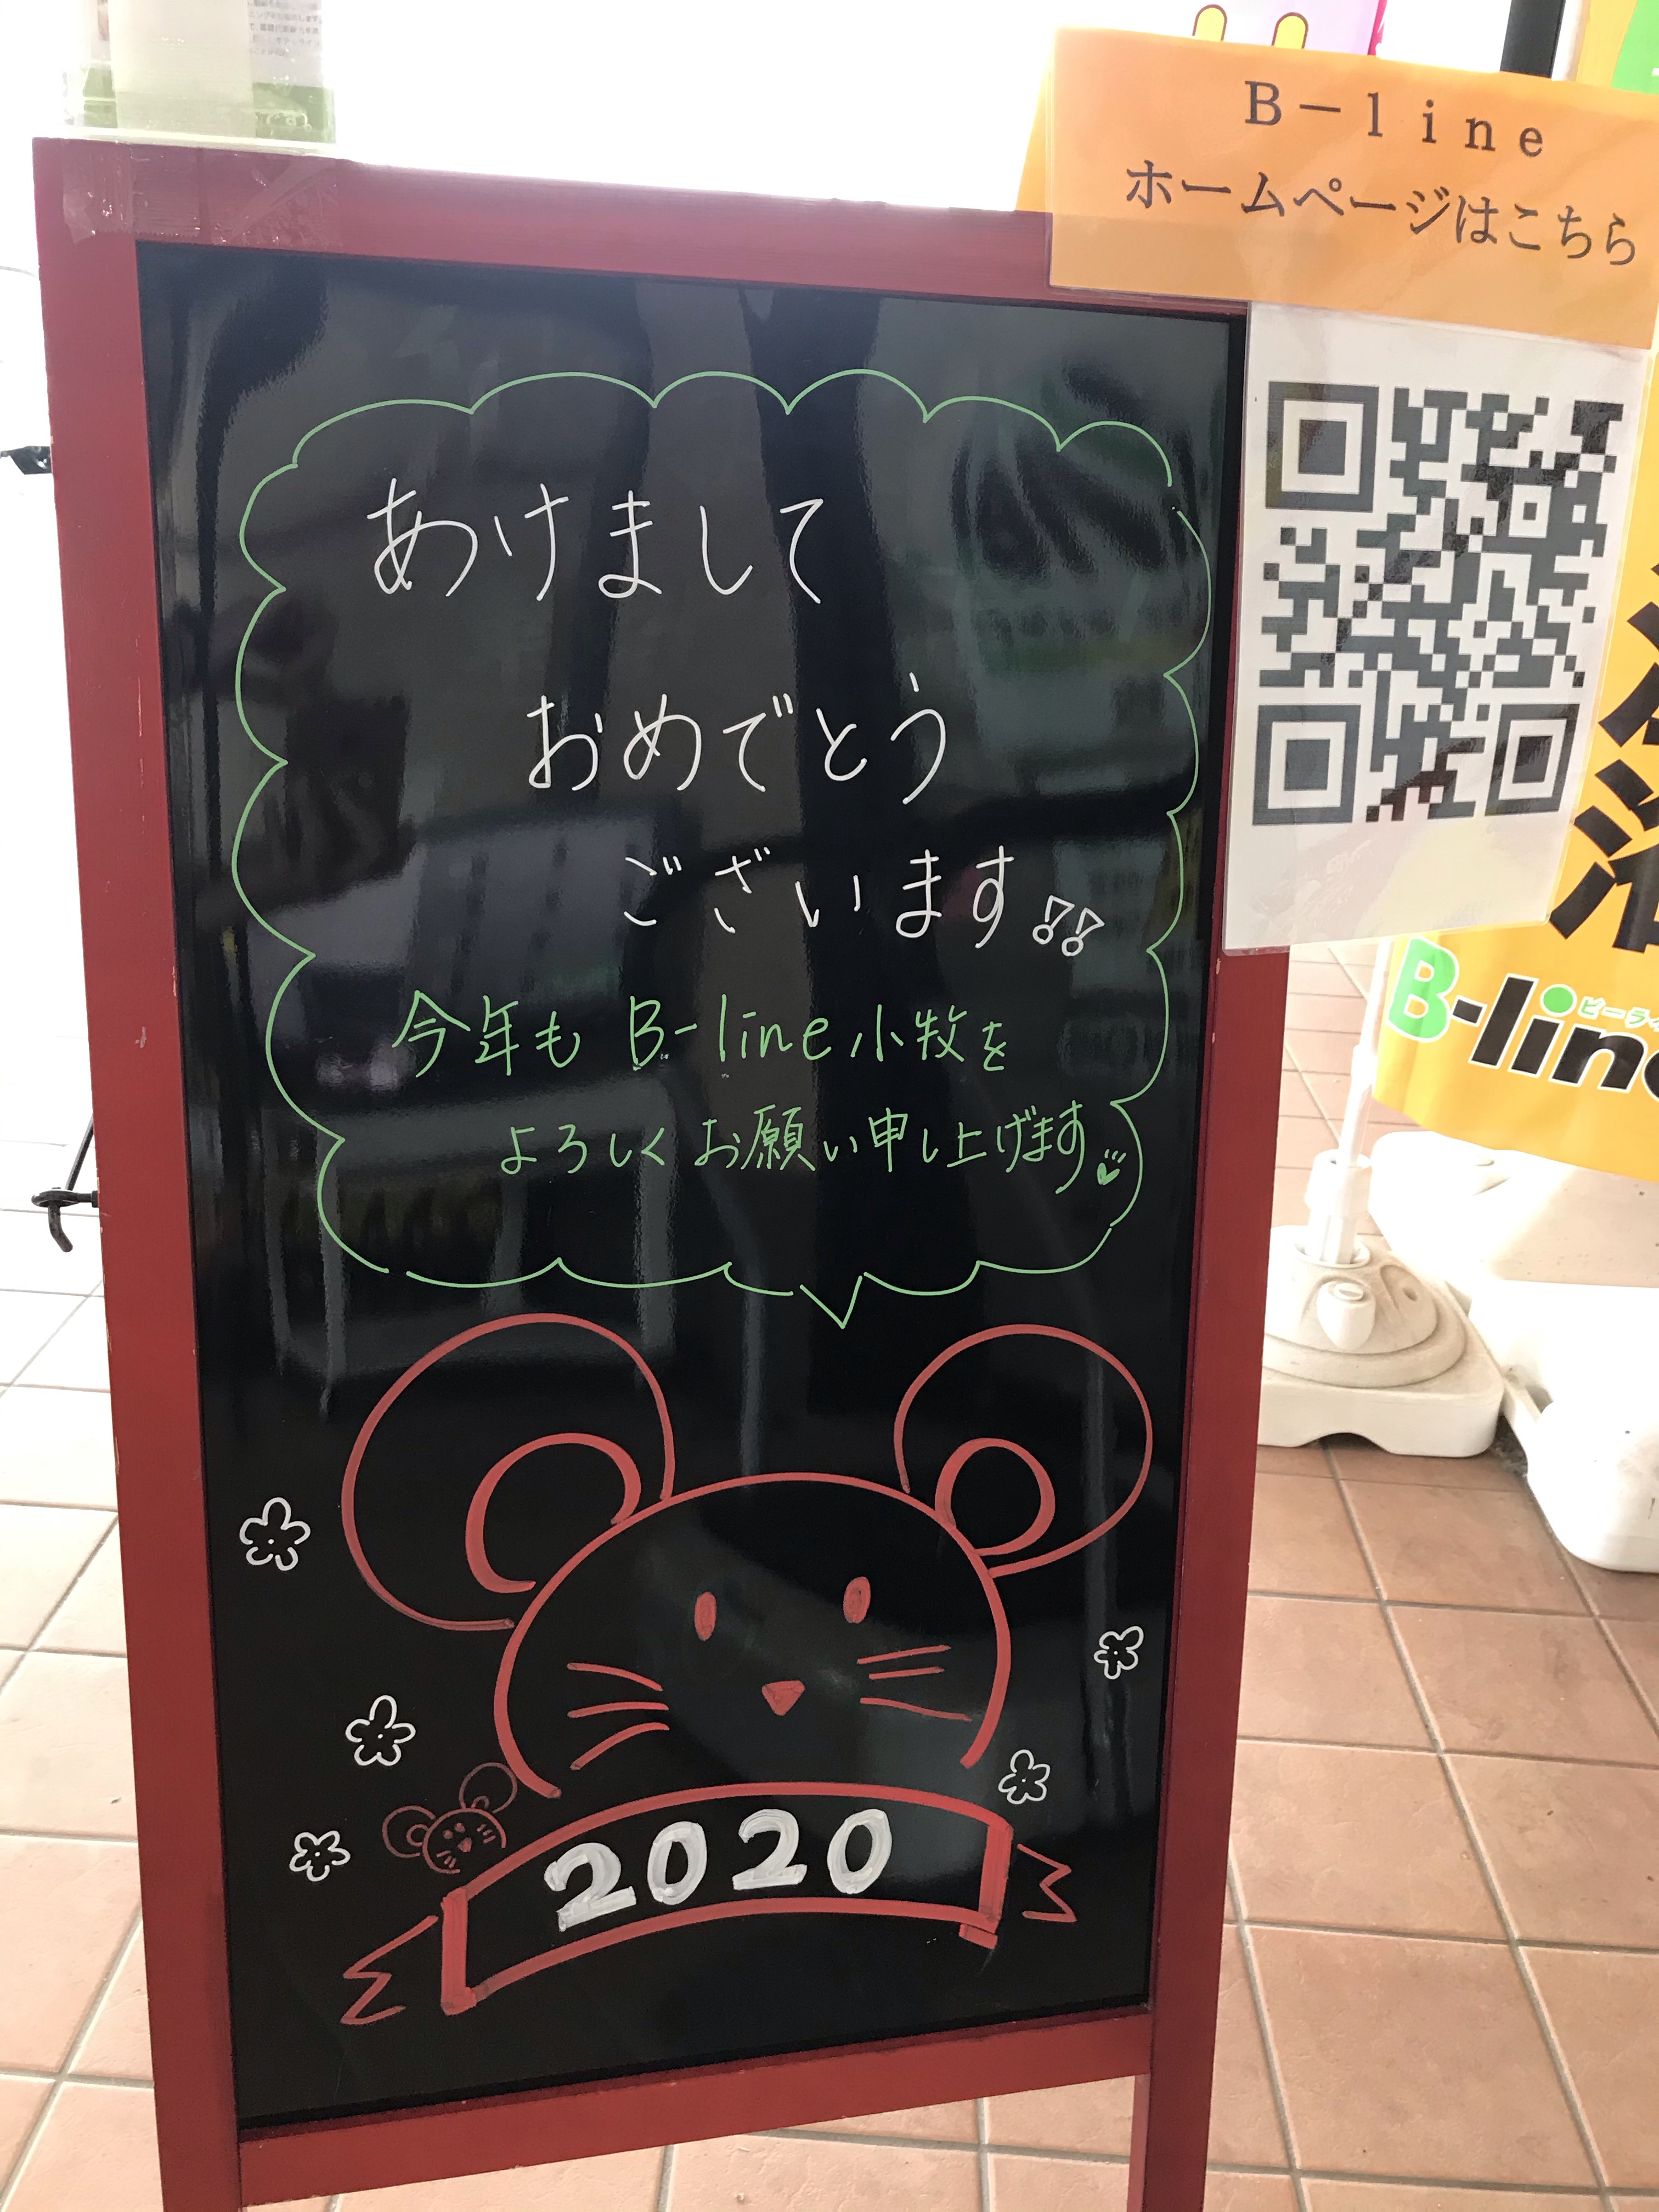 B-line
ホームページはこちら
あけまして
おめでとう
ございます!!
今年も B-line 小牧を
よろしくお願い申し上げます
2020
B-line